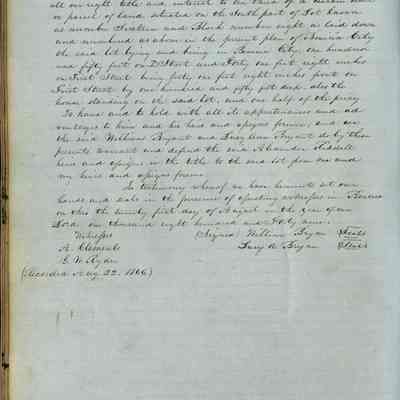 all our right title and interest to one third of a certain lot
or parcel of land situated on the South part of Lot known
as number Twelve and Block number eight as laid down
and numbered as taken in the present plan of Benicia City
the said lot lying and being in Benicia City one hundred
and fifty feet on D Street and forty one feet eight inches
on First Street being forty one feet eight inches front on
First Street by one hundred and fifty feet deep. also the
house standing on the said lot, and one half of the
To have and to hold with all its appurtenances and ad
vantages to him and his heirs and assigns forever, and we
the said William Bryant and Bryant do by these
presents warrant and defend the said Alexander Riddell
heirs and assigns in the title to the said lot from me and
my heirs and assigns forever
In testimony whereof we have hereunto set our
hands and seals in the presence of attesting witnesses in Benicia
on this the twenty first day of August in the year of our
Lord one thousand eight hundred and forty nine.
Witnesses (Signed) William Bryan (Seal)
A. Clements Lucy A. Bryan (Seal)
G. W. Ryan
(Recorded Aug 22.